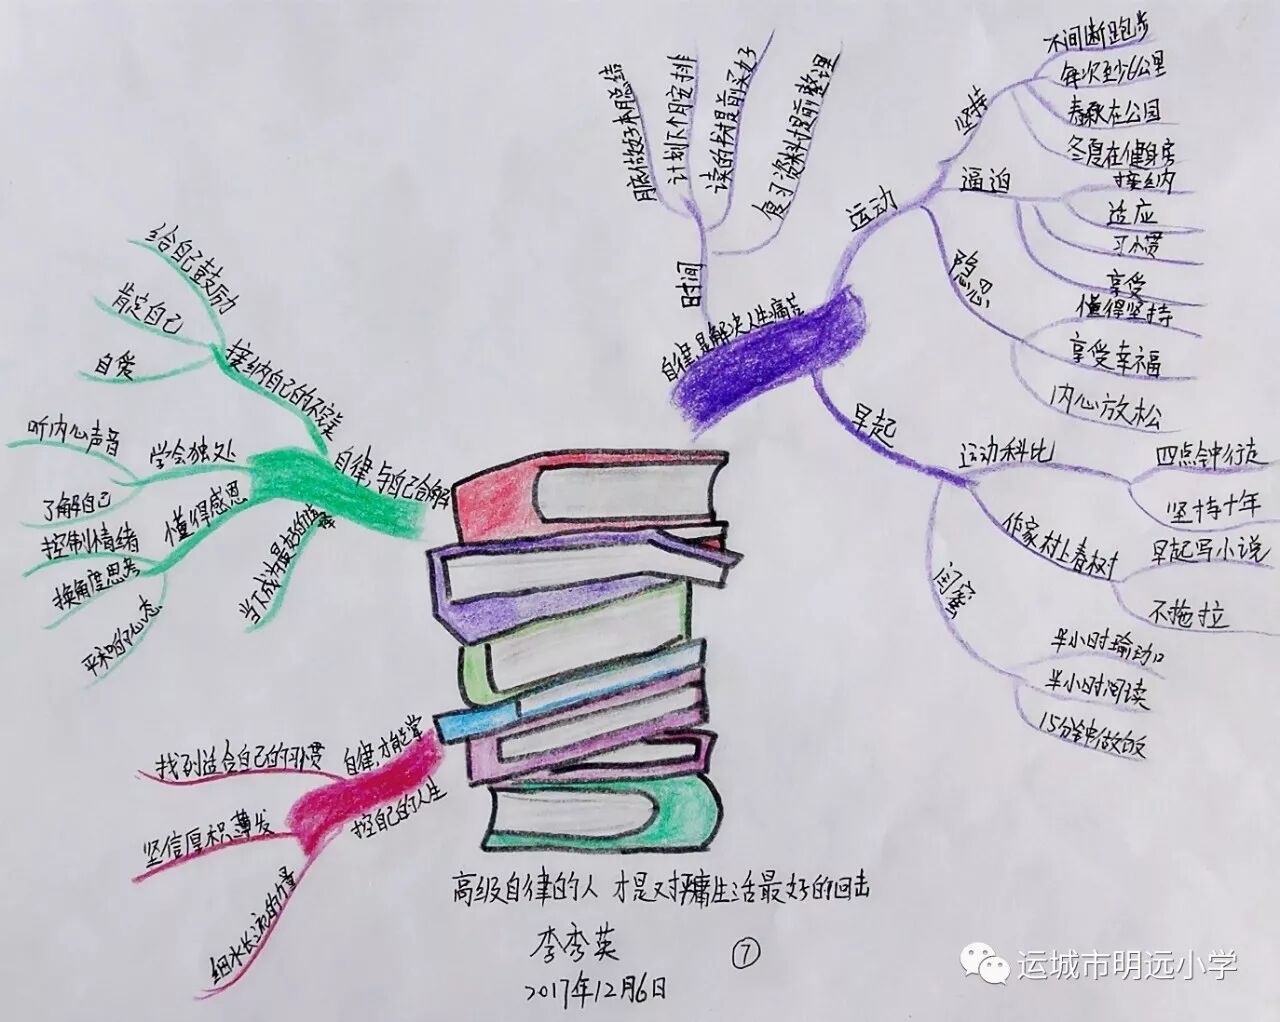 自律,是解决人生痛苦
时间
月底做好本月总结
计划下个月安排
读的书提前买好
复习资料提前整理
运动
坚持
不间断跑步
每次至少6公里
春秋在公园
冬夏在健身房
逼迫
接纳
适应
习惯
享受
隐忍
懂得坚持
享受幸福
内心放松
早起
运动科比
四点钟行走
坚持十年
作家村上春树
早起写小说
不拖拉
闺蜜
半小时瑜动口
半小时阅读
15分钟做饭
自律,与自己合解
接纳自己的不完美
给自己鼓励
肯定自己
自爱
学会独处
听内心声音
了解自己
懂得感恩
控制情绪
换角度思考
平和的心态
当下成为最好的
自律,才能掌
控自己的人生
找到适合自己的习惯
坚信厚积薄发
细水长流的力量
高级自律的人 才是对平庸生活最好的回击
李秀英
⑦
2017年12月6日
运城市明远小学